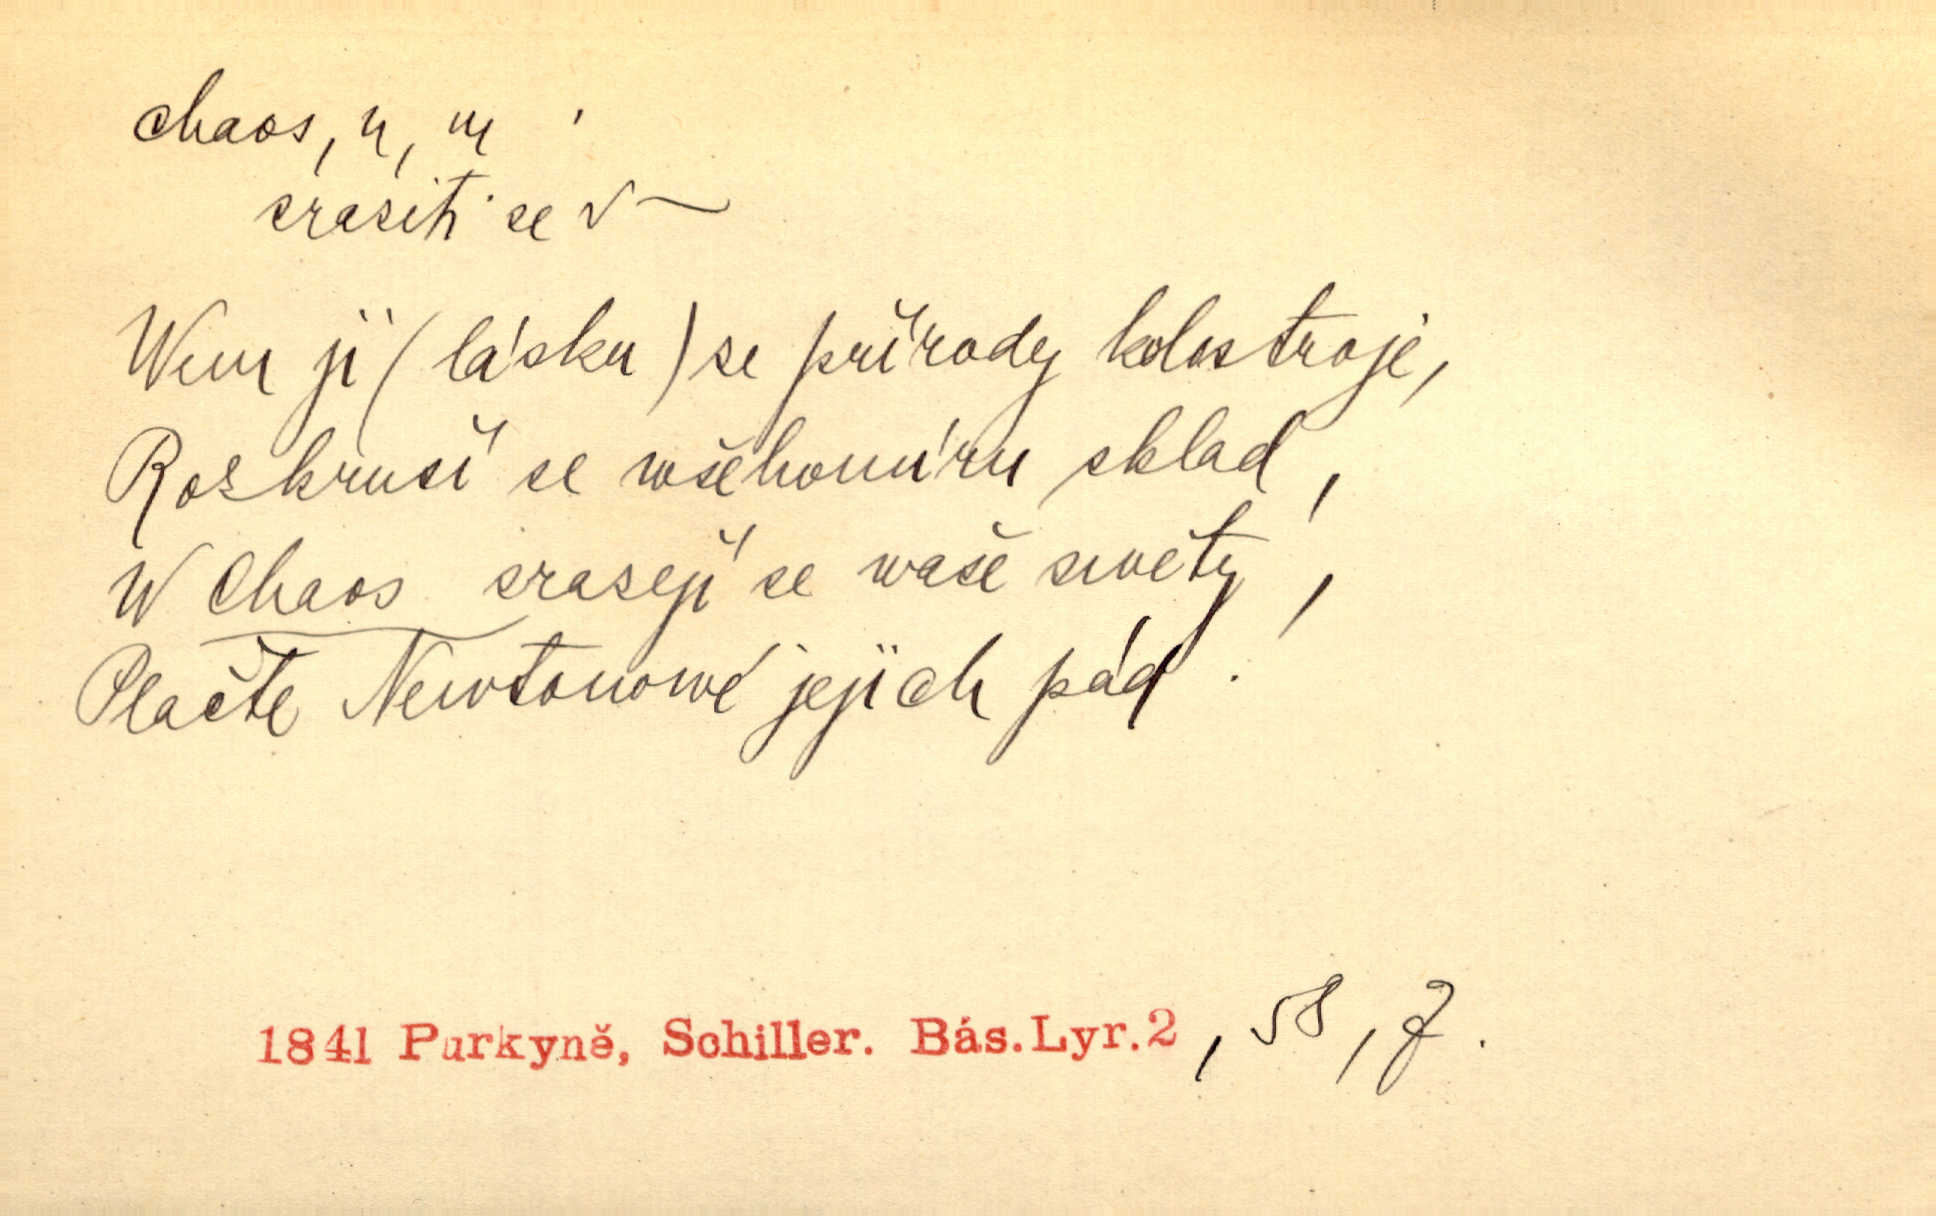 chaos, u, m
sraziti se v ~
Wem ji (lásku) se přírody kolostroje,
Rozkruší se wšehomíru sklad,
W Chaos srazejí se waše swěty,
Plačte Newtonowé jejich pád.
1841 Purkyně, Schiller. Bás. Lyr. 2, 58, Z.